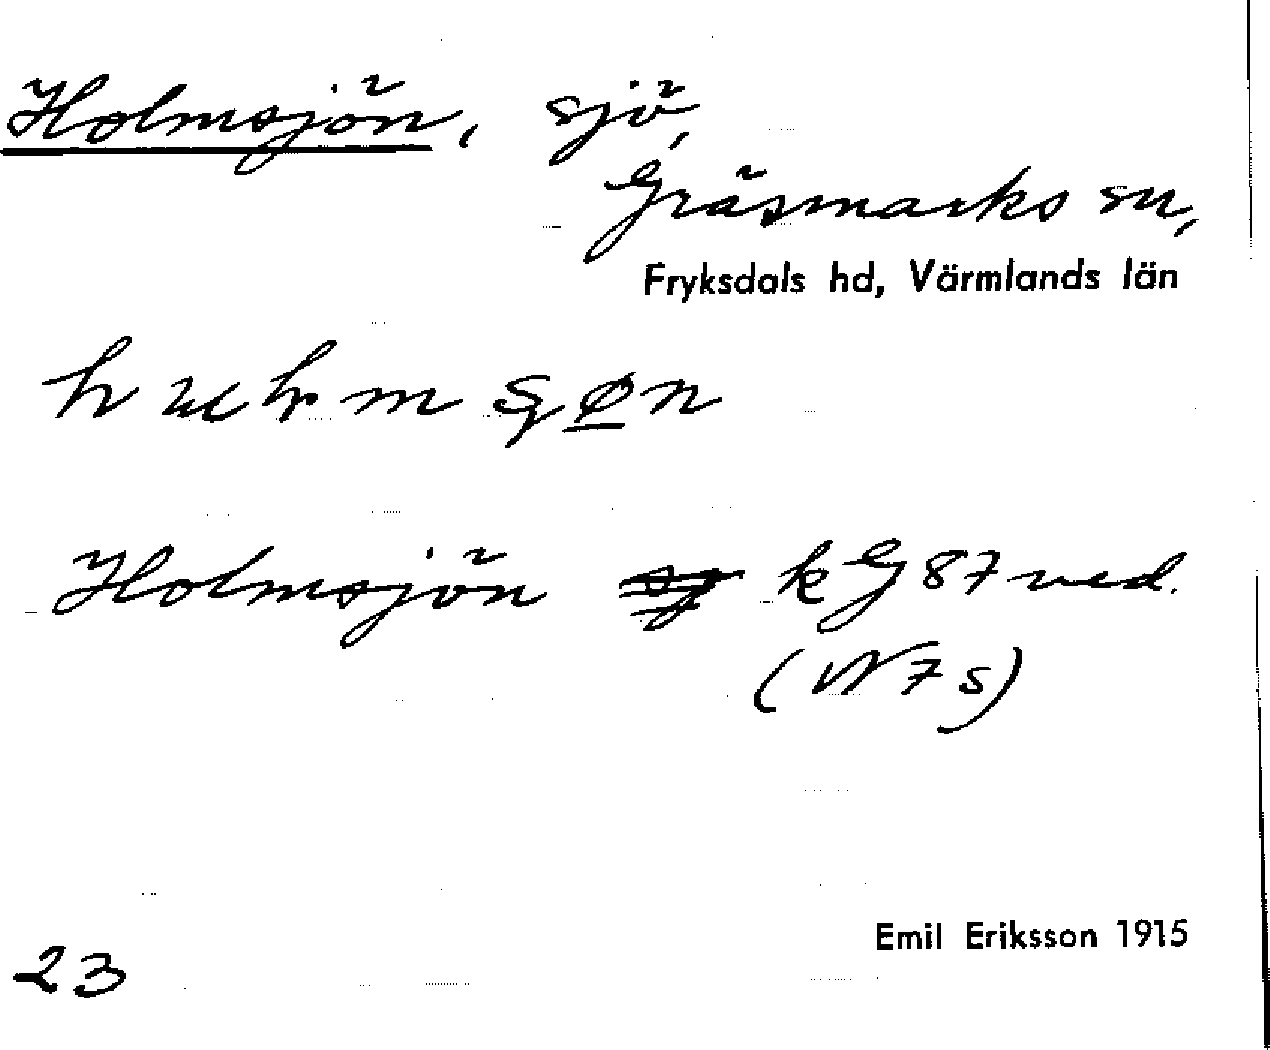 Holmsjön, sjö,
Gräsmarks sn,
Fryksdals hd, Värmlands län
Holmsjön kG 87 ved.
(N 7 s)
Emil Eriksson 1915
23